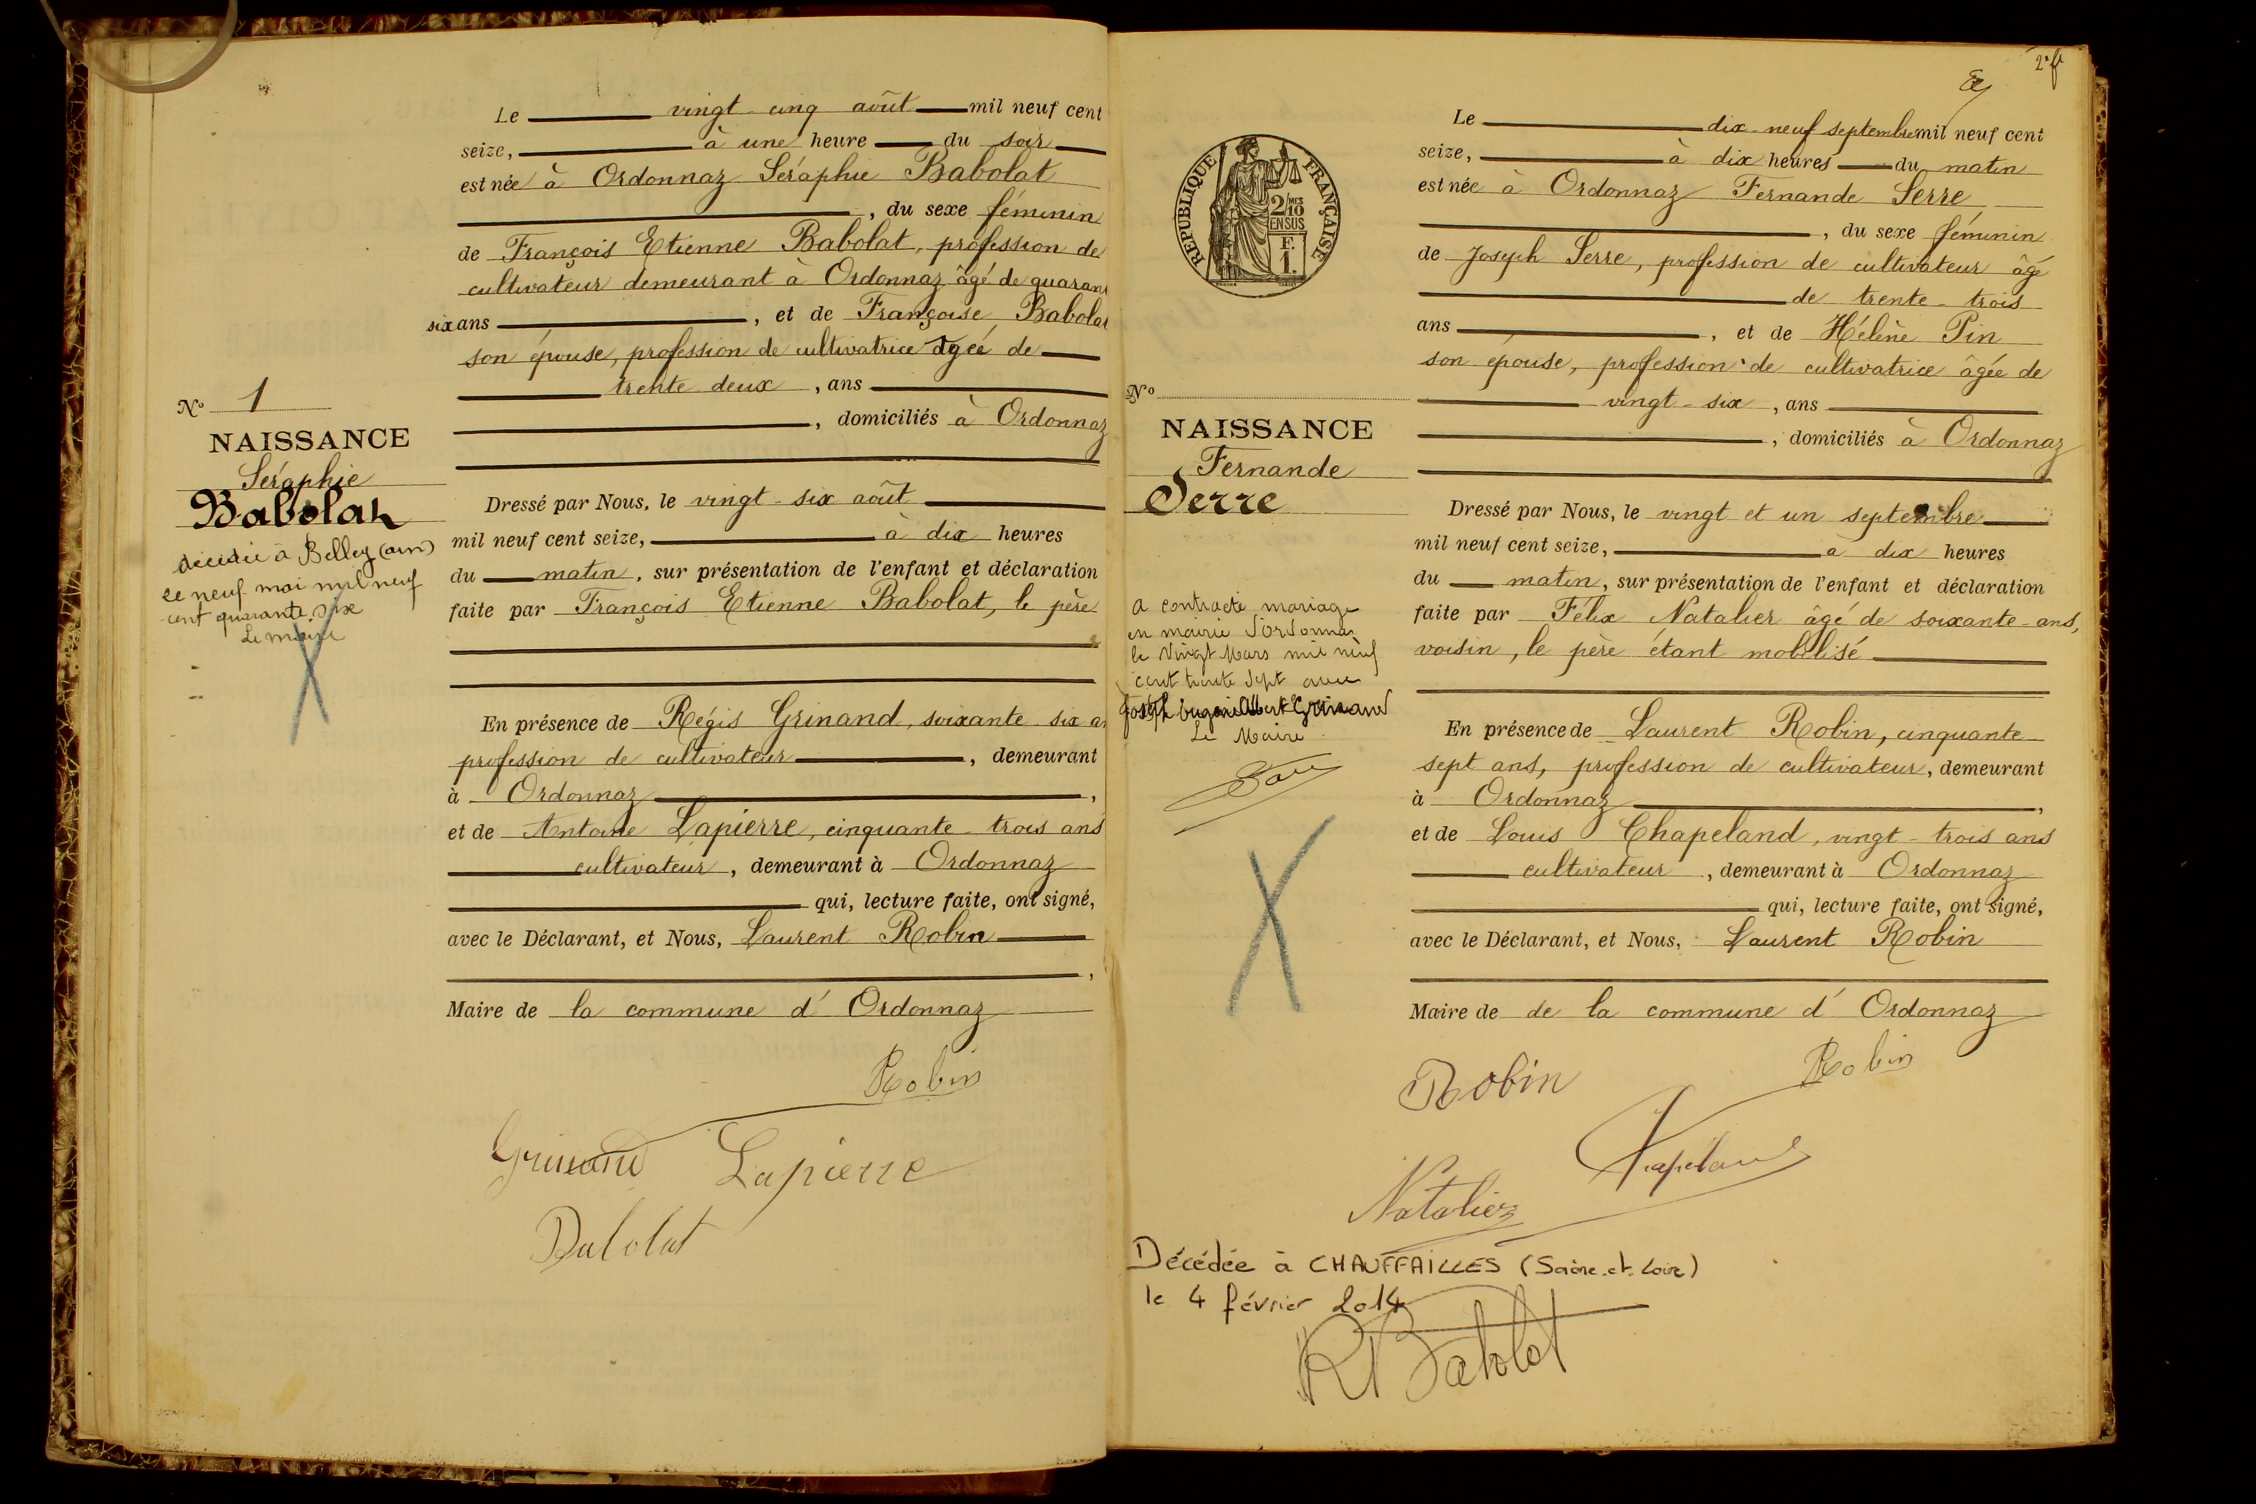 Le vingt-cinq août mil neuf cent
seize, à une heure du soir
est née à Ordonnaz Séraphie Babolat
, du sexe féminin
de François Etienne Babolat, profession de
cultivateur demeurant à Ordonnaz âgé de quarant
six ans , et de Françoise Babolat
son épouse, profession de cultivatrice âgée de
trente deux , ans
, domiciliés à Ordonnaz
No 1
NAISSANCE
Séraphie
Babolat
décédée à Belley (ain)
le neuf mai mil neuf
cent quarante six
Le maire
Dressé par Nous, le vingt-six août
mil neuf cent seize, à dix heures
du matin, sur présentation de l'enfant et déclaration
faite par François Etienne Babolat, le père
En présence de Régis Grinand, soixante six an
profession de cultivateur , demeurant
à Ordonnaz ,
et de Antoine Lapierre, cinquante-trois ans
cultivateur , demeurant à Ordonnaz
qui, lecture faite, ont signé,
avec le Déclarant, et Nous, Laurent Robin
,
Maire de la commune d'Ordonnaz
Robin
Grinand Lapierre
Babolat
2e ft
Le dix-neuf septembre mil neuf cent
seize, à dix heures du matin
est née à Ordonnaz Fernande Serre
, du sexe féminin
de Joseph Serre, profession de cultivateur âgé
de trente-trois
ans , et de Hélène Pin
son épouse, profession de cultivatrice âgée de
vingt-six , ans
, domiciliés à Ordonnaz
REPUBLIQUE FRANÇAISE
2/10 MES
EN SUS
F.
1.
No
NAISSANCE
Fernande
Serre
a contracté mariage
en mairie d'Ordonnaz
le Vingt Mars mil neuf
cent trente sept avec
Joseph Eugène Albert Grinand
Le Maire
Dressé par Nous, le vingt et un septembre
mil neuf cent seize, à dix heures
du matin, sur présentation de l'enfant et déclaration
faite par Félix Natalier âgé de soixante-ans,
voisin, le père étant mobilisé
En présence de Laurent Robin, cinquante
sept ans, profession de cultivateur, demeurant
à Ordonnaz ,
et de Louis Chapeland, vingt-trois ans
cultivateur , demeurant à Ordonnaz
qui, lecture faite, ont signé,
avec le Déclarant, et Nous, Laurent Robin
Maire de de la commune d'Ordonnaz
Robin Robin
Chapeland
Natalier
Décédée à CHAUFFAILLES (Saône-et-Loire)
le 4 février 2014
R Babolat